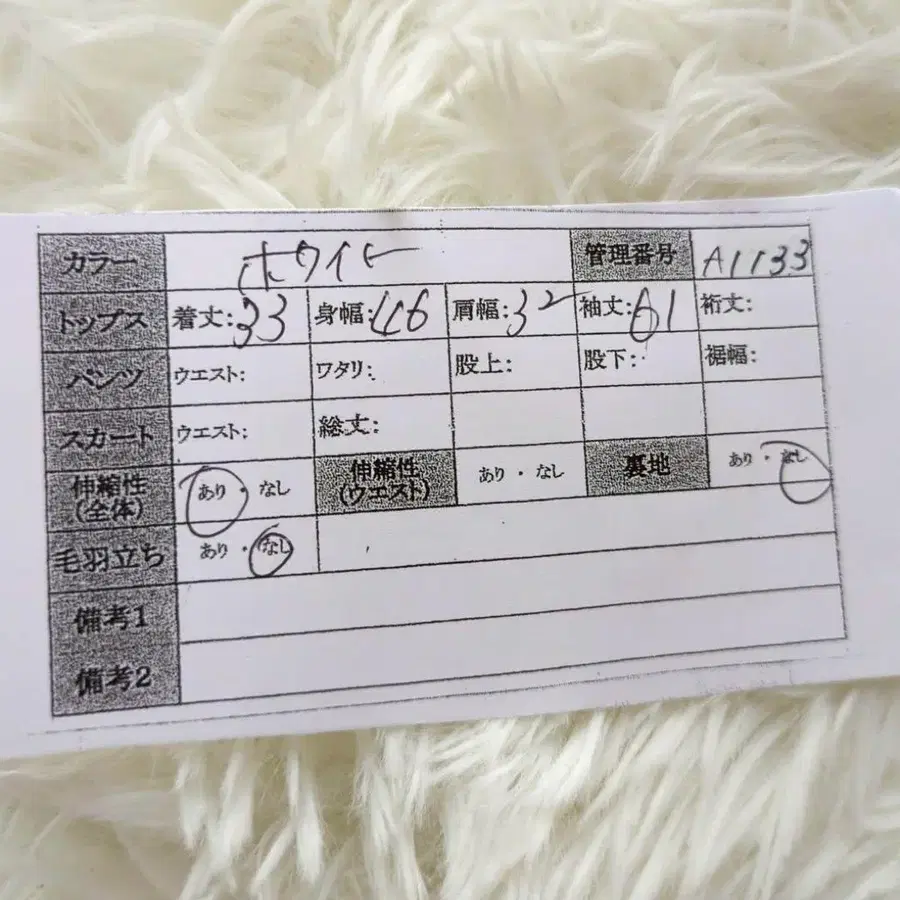 カラー ホワイト 管理番号 A1133
トップス 着丈:33 身幅:46 肩幅:32 袖丈:61 裄丈:
パンツ ウエスト: ワタリ: 股上: 股下: 裾幅:
スカート ウエスト: 総丈:
伸縮性(全体) あり・なし 伸縮性(ウエスト) あり・なし 裏地 あり・なし
毛羽立ち あり・なし
備考1
備考2